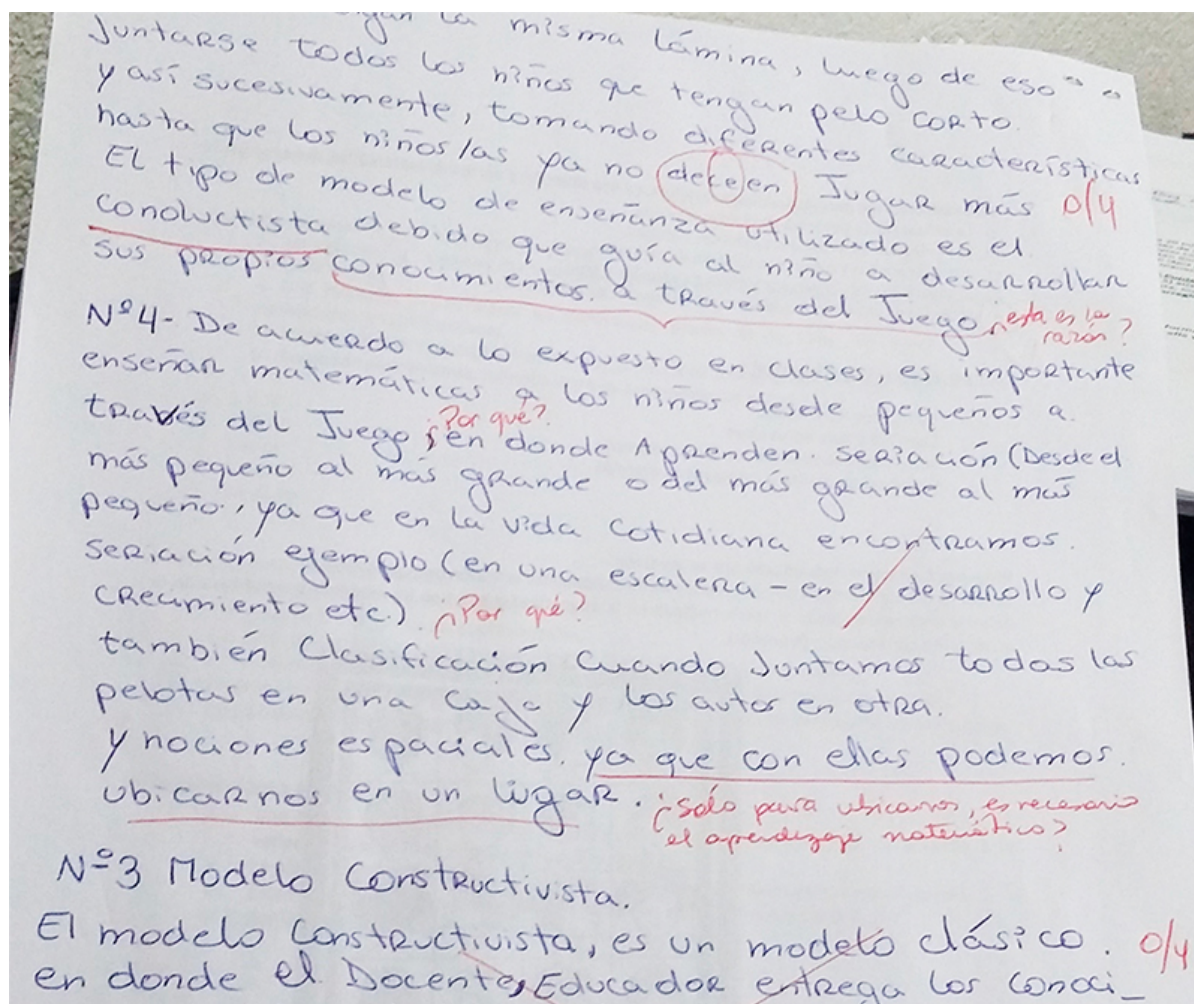 la misma lámina, luego de eso
Juntarse todos los niños que tengan pelo corto
y así sucesivamente, tomando diferentes características
hasta que los niños/as ya no deceen Jugar más 0/4
El tipo de modelo de enseñanza utilizado es el
conductista debido que guía al niño a desarrollar
sus propios conocimientos. a través del Juego ¿esta es la razón?
Nº4- De acuerdo a lo expuesto en clases, es importante
enseñar matemáticas a los niños desde pequeños a
través del Juego ¿Por qué? en donde Aprenden. seriación (Desde el
más pequeño al mas grande o del más grande al más
pequeño., ya que en la vida cotidiana encontramos.
seriación ejemplo (en una escalera - en el desarrollo y
crecimiento etc.) ¿Por qué?
también Clasificación Cuando Juntamos todas las
pelotas en una caja y los autos en otra.
y nociones espaciales. ya que con ellas podemos.
ubicarnos en un lugar. ¿solo para ubicarnos, es necesario
el aprendizaje matemático?
Nº3 Modelo Constructivista.
El modelo Constructivista, es un modelo clásico. 0/4
en donde el Docente, Educador entrega los conoci-